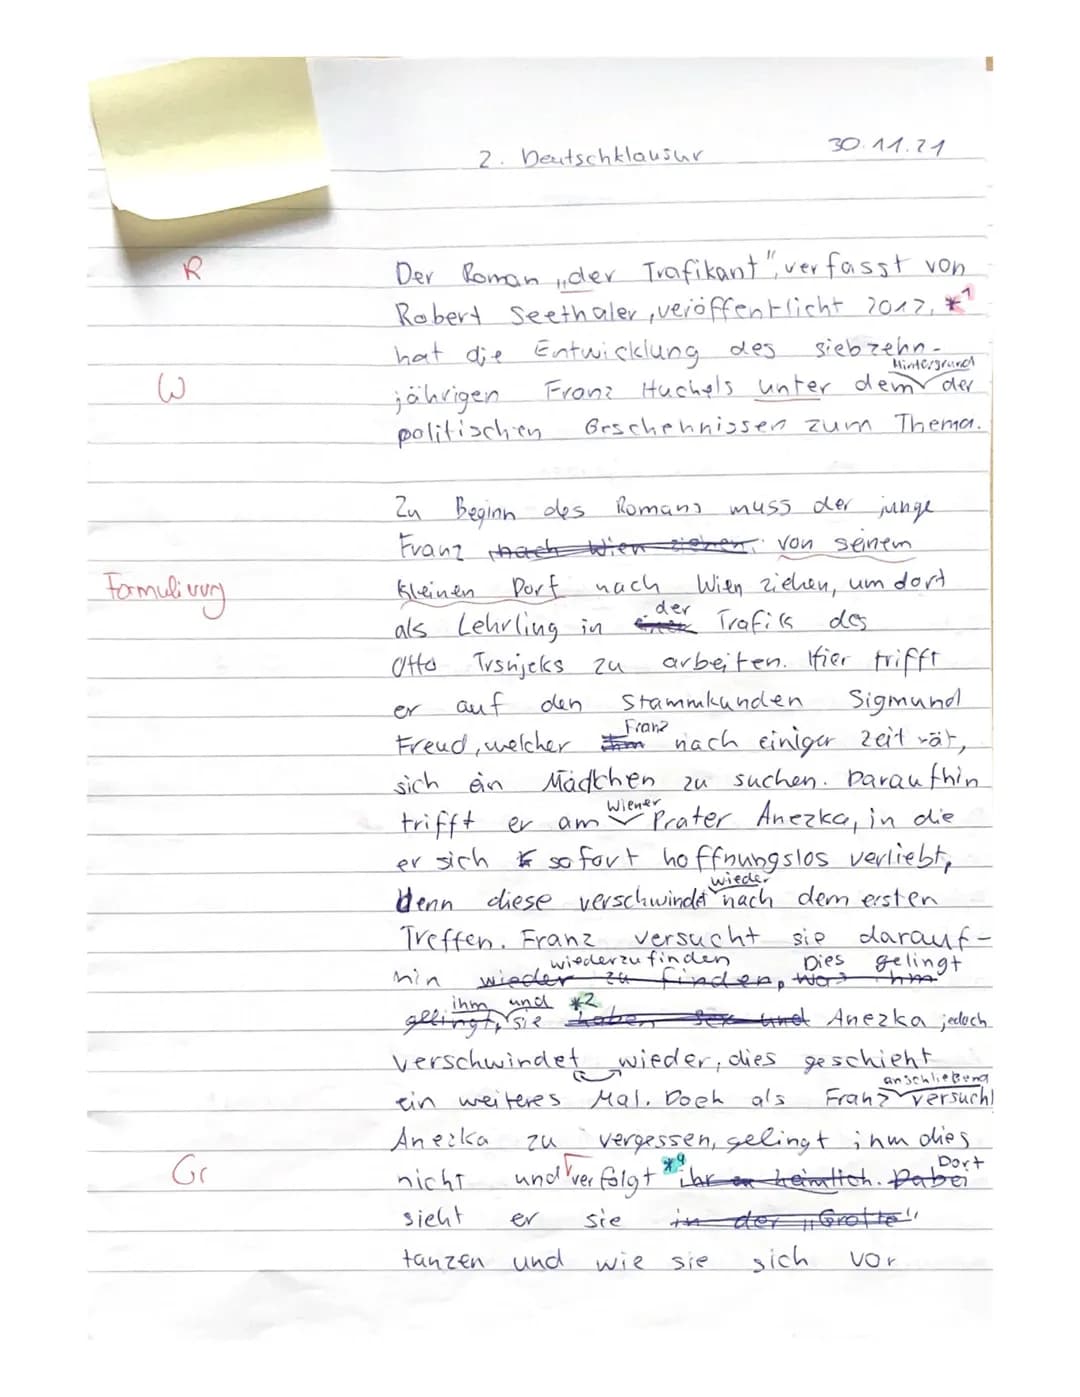 2. Deutschklausur 30.11.21
R Der Roman „der Trafikant", verfasst von
Robert Seethaler, veröffentlicht 2012, *1
hat die Entwicklung des siebzehn-
Hintergrund
W jährigen Franz Huchels unter dem der
politischen Geschehnissen zum Thema.
Zu Beginn des Romans muss der junge
Franz nach Wien ziehen, von seinem
Formulierung kleinen Dorf nach Wien ziehen, um dort
der
als Lehrling in einer Trafik des
Otto Trsnjeks zu arbeiten. Hier trifft
er auf den Stammkunden Sigmund
Franz
Freud, welcher ihm nach einiger Zeit rät,
sich ein Mädchen zu suchen. Daraufhin
Wiener
trifft er am Prater Anezka, in die
er sich sofort hoffnungslos verliebt,
wieder
denn diese verschwindet nach dem ersten
Treffen. Franz versucht sie darauf-
wiederzufinden Dies gelingt
hin wieder zu finden, was ihm
ihm und *2
gelingt, sie haben Sex und Anezka jedoch
verschwindet wieder, dies geschieht
anschließend
ein weiteres Mal. Doch als Franz versucht
Anezka zu vergessen, gelingt ihm dies
*4 Dort
Gr nicht und verfolgt ihr heimlich. Dabei
sieht er sie in der „Grotte"
tanzen und wie sie sich vor